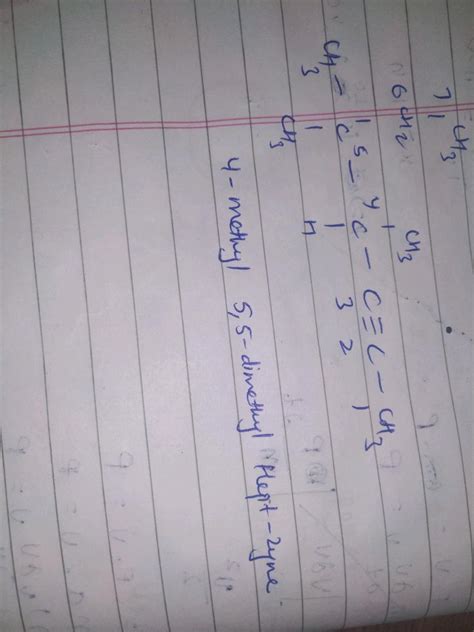 7 CH3
6CH2 CH3
5 4
CH3 - C - C - C≡C - CH3
3 2 1
CH3 H
4-methyl 5,5-dimethyl Hept-2yne.